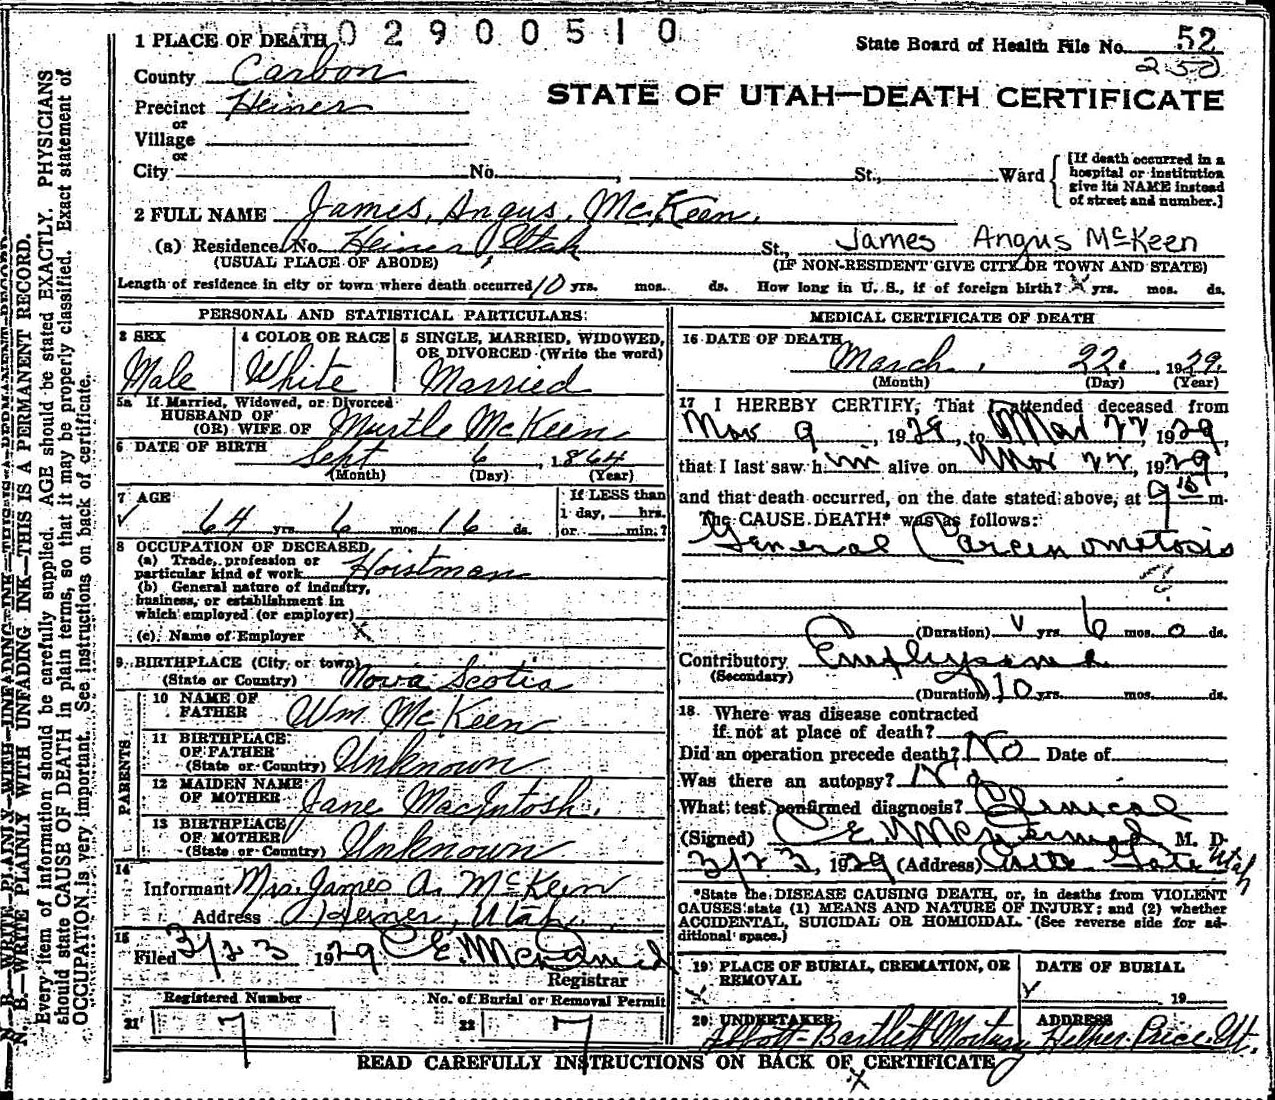 02900510
State Board of Health File No. 52
250
STATE OF UTAH—DEATH CERTIFICATE
1 PLACE OF DEATH
County Carbon
Precinct Heiner
or
Village
or
City No. , St., Ward
[If death occurred in a
hospital or institution
give its NAME instead
of street and number.]
2 FULL NAME James Angus McKeen.
(a) Residence No. Heiner, Utah St., James Angus McKeen
(USUAL PLACE OF ABODE) (IF NON-RESIDENT GIVE CITY OR TOWN AND STATE)
Length of residence in city or town where death occurred 10 yrs. mos. ds. How long in U. S., if of foreign birth? x yrs. mos. ds.
PERSONAL AND STATISTICAL PARTICULARS
3 SEX 4 COLOR OR RACE 5 SINGLE, MARRIED, WIDOWED,
OR DIVORCED (Write the word)
Male White Married
5a If Married, Widowed, or Divorced
HUSBAND OF
(OR) WIFE OF Myrtle McKeen
6 DATE OF BIRTH Sept 6, 1864
(Month) (Day) (Year)
7 AGE If LESS than
1 day, hrs.
64 yrs. 6 mos. 16 ds. or min.?
8 OCCUPATION OF DECEASED
(a) Trade, profession or
particular kind of work Hoistman
(b) General nature of industry,
business, or establishment in
which employed (or employer)
(c) Name of Employer x
9 BIRTHPLACE (City or town)
(State or Country) Nova Scotia
PARENTS
10 NAME OF
FATHER Wm McKeen
11 BIRTHPLACE
OF FATHER
(State or Country) Unknown
12 MAIDEN NAME
OF MOTHER Jane MacIntosh.
13 BIRTHPLACE
OF MOTHER
(State or Country) Unknown
14
Informant Mrs. James A. McKeen
Address Heiner, Utah.
15
Filed 3/23 1929 C E. McDermid
Registrar
Registered Number No. of Burial or Removal Permit
21 7 22 7
MEDICAL CERTIFICATE OF DEATH
16 DATE OF DEATH
March 22. , 1929.
(Month) (Day) (Year)
17 I HEREBY CERTIFY, That I attended deceased from
Mar 9, 1929, to Mar 22, 1929,
that I last saw him alive on Mar 22, 1929,
and that death occurred, on the date stated above, at m.
The CAUSE DEATH* was as follows:
General Carcinomatosis
(Duration) yrs. 6 mos. 0 ds.
Contributory Emphysema
(Secondary)
(Duration) 10 yrs. mos. ds.
18. Where was disease contracted
if not at place of death?
Did an operation precede death? No Date of
Was there an autopsy? No
What test confirmed diagnosis? Clinical
(Signed) C E. McDermid M. D.
3/23, 1929 (Address) Castle Gate Utah
*State the DISEASE CAUSING DEATH, or, in deaths from VIOLENT
CAUSES state (1) MEANS AND NATURE OF INJURY; and (2) whether
ACCIDENTAL, SUICIDAL OR HOMICIDAL. (See reverse side for ad-
ditional space.)
19 PLACE OF BURIAL, CREMATION, OR
REMOVAL
DATE OF BURIAL
19
20 UNDERTAKER ADDRESS
Bartlett Mortuary Helper-Price, Ut.
READ CAREFULLY INSTRUCTIONS ON BACK OF CERTIFICATE
N. B.—WRITE PLAINLY WITH UNFADING INK—THIS IS A PERMANENT RECORD.
Every item of information should be carefully supplied. AGE should be stated EXACTLY. PHYSICIANS
should state CAUSE OF DEATH in plain terms, so that it may be properly classified. Exact statement of
OCCUPATION is very important. See instructions on back of certificate.